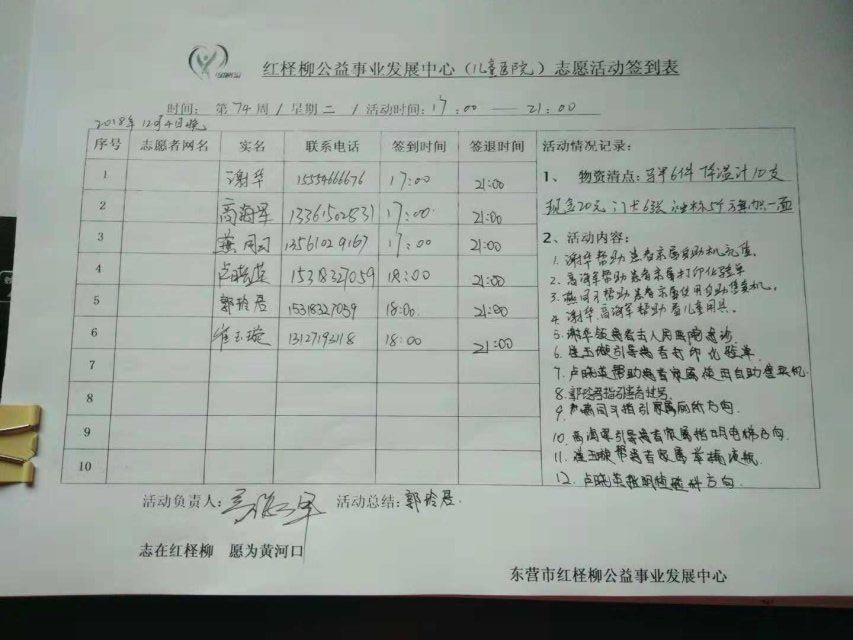 红柽柳公益事业发展中心（儿童医院）志愿活动签到表
时间：第74周/星期二/活动时间：17:00—21:00
2018年12月4日晚
序号 志愿者网名 实名 联系电话 签到时间 签退时间
1 谢华 15554666676 17:00 21:00
2 高海军 13361502831 17:00 21:00
3 燕同习 13561029167 17:00 21:00
4 卢晓英 15318327059 18:00 21:00
5 郭玲君 15318327059 18:00 21:00
6 崔玉璇 13127193118 18:00 21:00
7
8
9
10
活动情况记录：
1、 物资清点：马甲6件 体温计12支
现金20元 门卡6张 旗帜一面
2、活动内容：
1. 谢华帮助患者家属自助机充值。
2. 高海军帮助患者家属打印化验单
3. 燕同习帮助患者家属使用自助售货机。
4. 谢华、高海军帮助看儿童用具。
5. 谢华领患者去人民医院急诊
6. 崔玉璇引导患者打印化验单.
7. 卢晓英帮助患者家属使用自助售货机
8. 郭玲君指引患者挂号。
9. 燕同习指引家属厕所方向.
10. 高海军引导患者家属指明电梯方向.
11. 崔玉璇帮患者家属举输液瓶.
12. 卢晓英指明方向.
活动负责人：高海军 活动总结：郭玲君.
志在红柽柳 愿为黄河口
东营市红柽柳公益事业发展中心